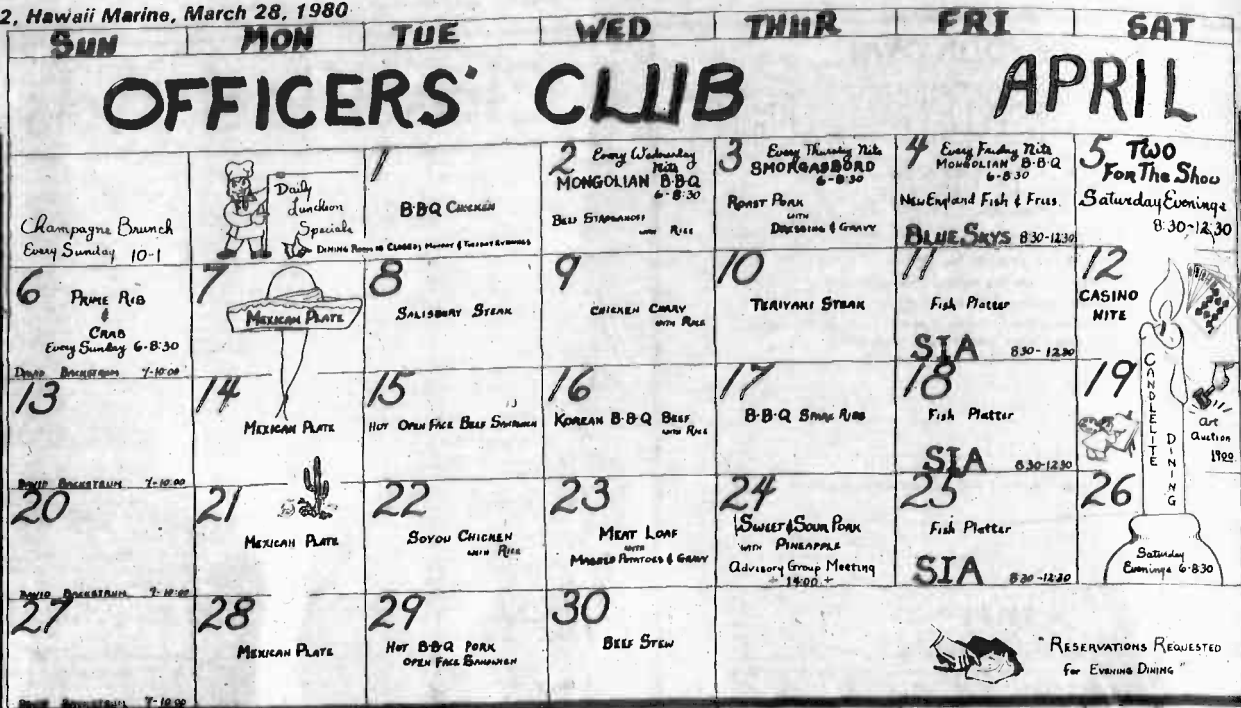 2, Hawaii Marine, March 28, 1980
SUN MON TUE WED THUR FRI SAT
OFFICERS' CLUB APRIL
Champagne Brunch
Every Sunday 10-1
Daily
Luncheon
Specials
DINING ROOM IS CLOSED MONDAY & TUESDAY EVENINGS
1
B·B·Q CHICKEN
2 Every Wednesday
Nite
MONGOLIAN B·B·Q
6-8:30
BEEF STROGANOFF
WITH RICE
3 Every Thursday Nite
SMORGASBORD
6-8:30
ROAST PORK
WITH
DRESSING & GRAVY
4 Every Friday Nite
MONGOLIAN B·B·Q
6-8:30
New England Fish & Fries
BLUE SKYS 8:30-12:30
5 TWO
FOR The Show
Saturday Evenings
8:30-12:30
6 PRIME RIB
&
CRAB
Every Sunday 6-8:30
DAVID BACKSTRUM 7-10:00
7
MEXICAN PLATE
8
SALISBURY STEAK
9
CHICKEN CURRY
WITH RICE
10
TERIYAKI STEAK
11
Fish Platter
SIA 8:30-12:30
12
CASINO
NITE
13
DAVID BACKSTRUM 7-10:00
14
MEXICAN PLATE
15
HOT OPEN FACE BEEF SANDWICH
16
KOREAN B·B·Q BEEF
WITH RICE
17
B·B·Q SPARE RIBS
18
Fish Platter
SIA 8:30-12:30
19
Art
Auction
1900
CANDLELITE
DINING
20
DAVID BACKSTRUM 7-10:00
21
MEXICAN PLATE
22
SOYOU CHICKEN
WITH RICE
23
MEAT LOAF
WITH
MASHED POTATOES & GRAVY
24
SWEET & SOUR PORK
WITH PINEAPPLE
Advisory Group Meeting
+ 14:00 +
25
Fish Platter
SIA 8:30-12:30
26
Saturday
Evenings 6-8:30
27
DAVID BACKSTRUM 7-10:00
28
MEXICAN PLATE
29
HOT B·B·Q PORK
OPEN FACE SANDWICH
30
BEEF STEW
"RESERVATIONS REQUESTED
for EVENING DINING"